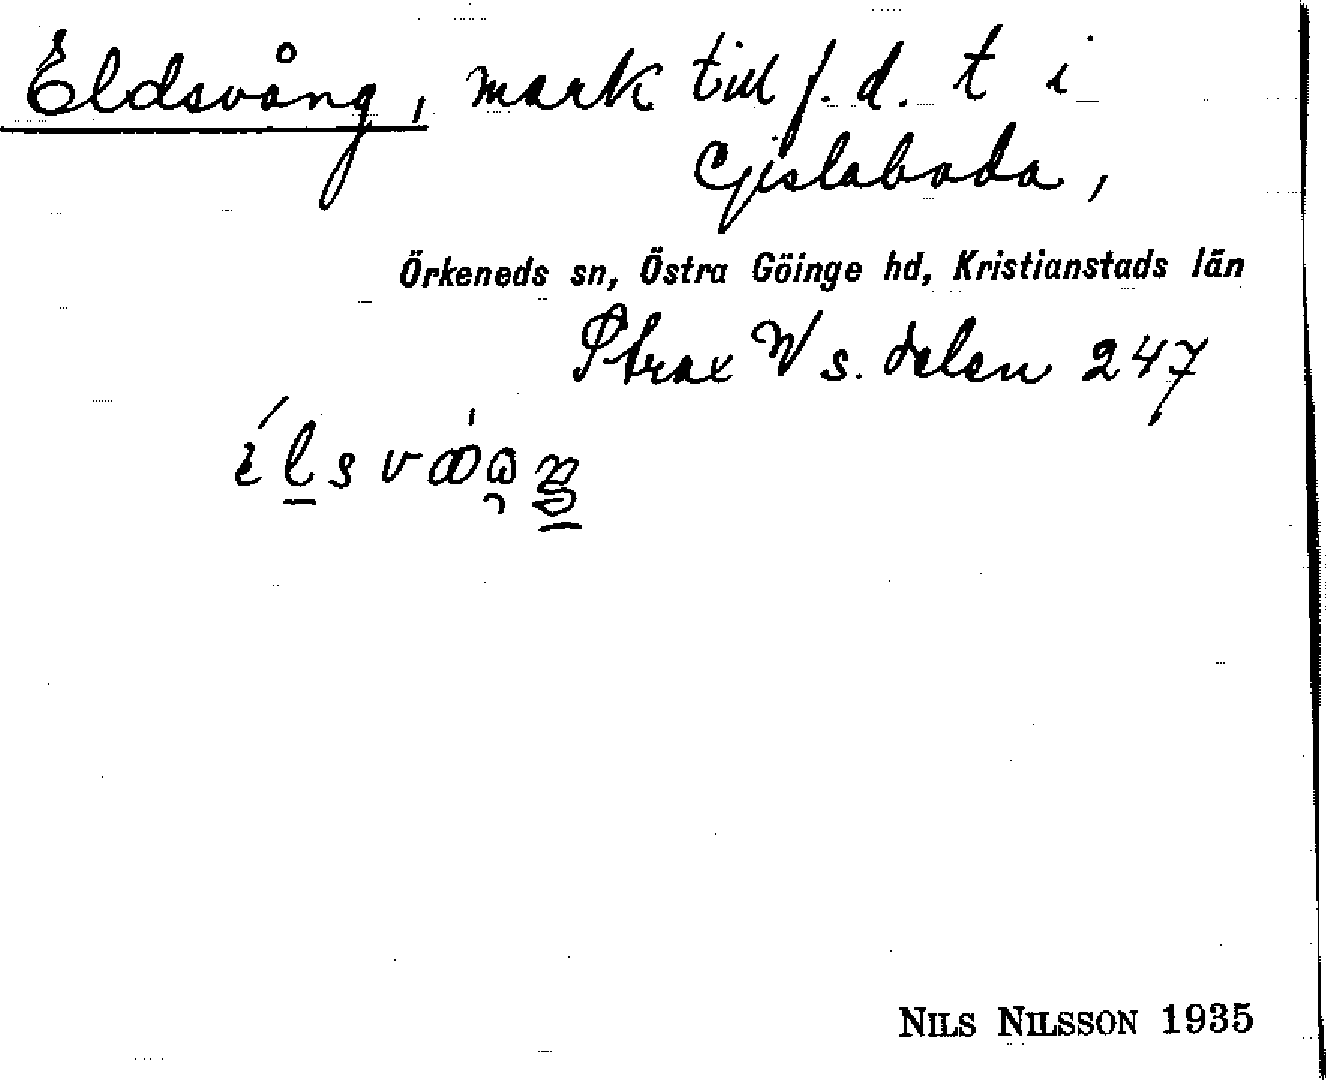 Eldsvång, mark till f.d. t i
Gislaboda,
Örkeneds sn, Östra Göinge hd, Kristianstads län
Strax V s. delen 247
NILS NILSSON 1935